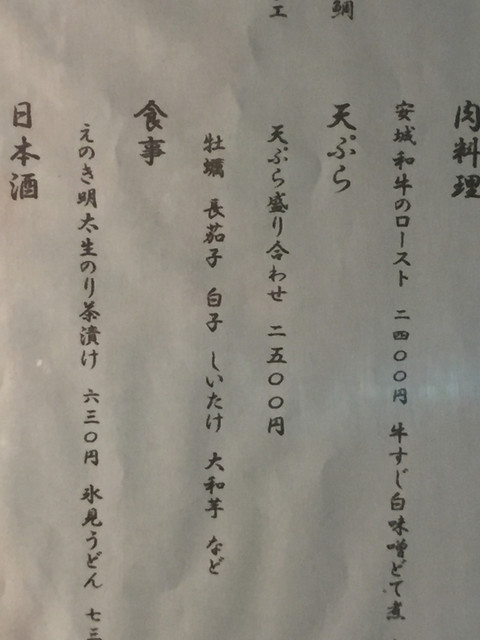 鯛
肉料理
安城和牛のロースト 二四〇〇円 牛すじ白味噌どて煮
天ぷら
天ぷら盛り合わせ 二五〇〇円
牡蠣 長茄子 白子 しいたけ 大和芋 など
食事
えのき明太生のり茶漬け 六三〇円 氷見うどん 七三
日本酒